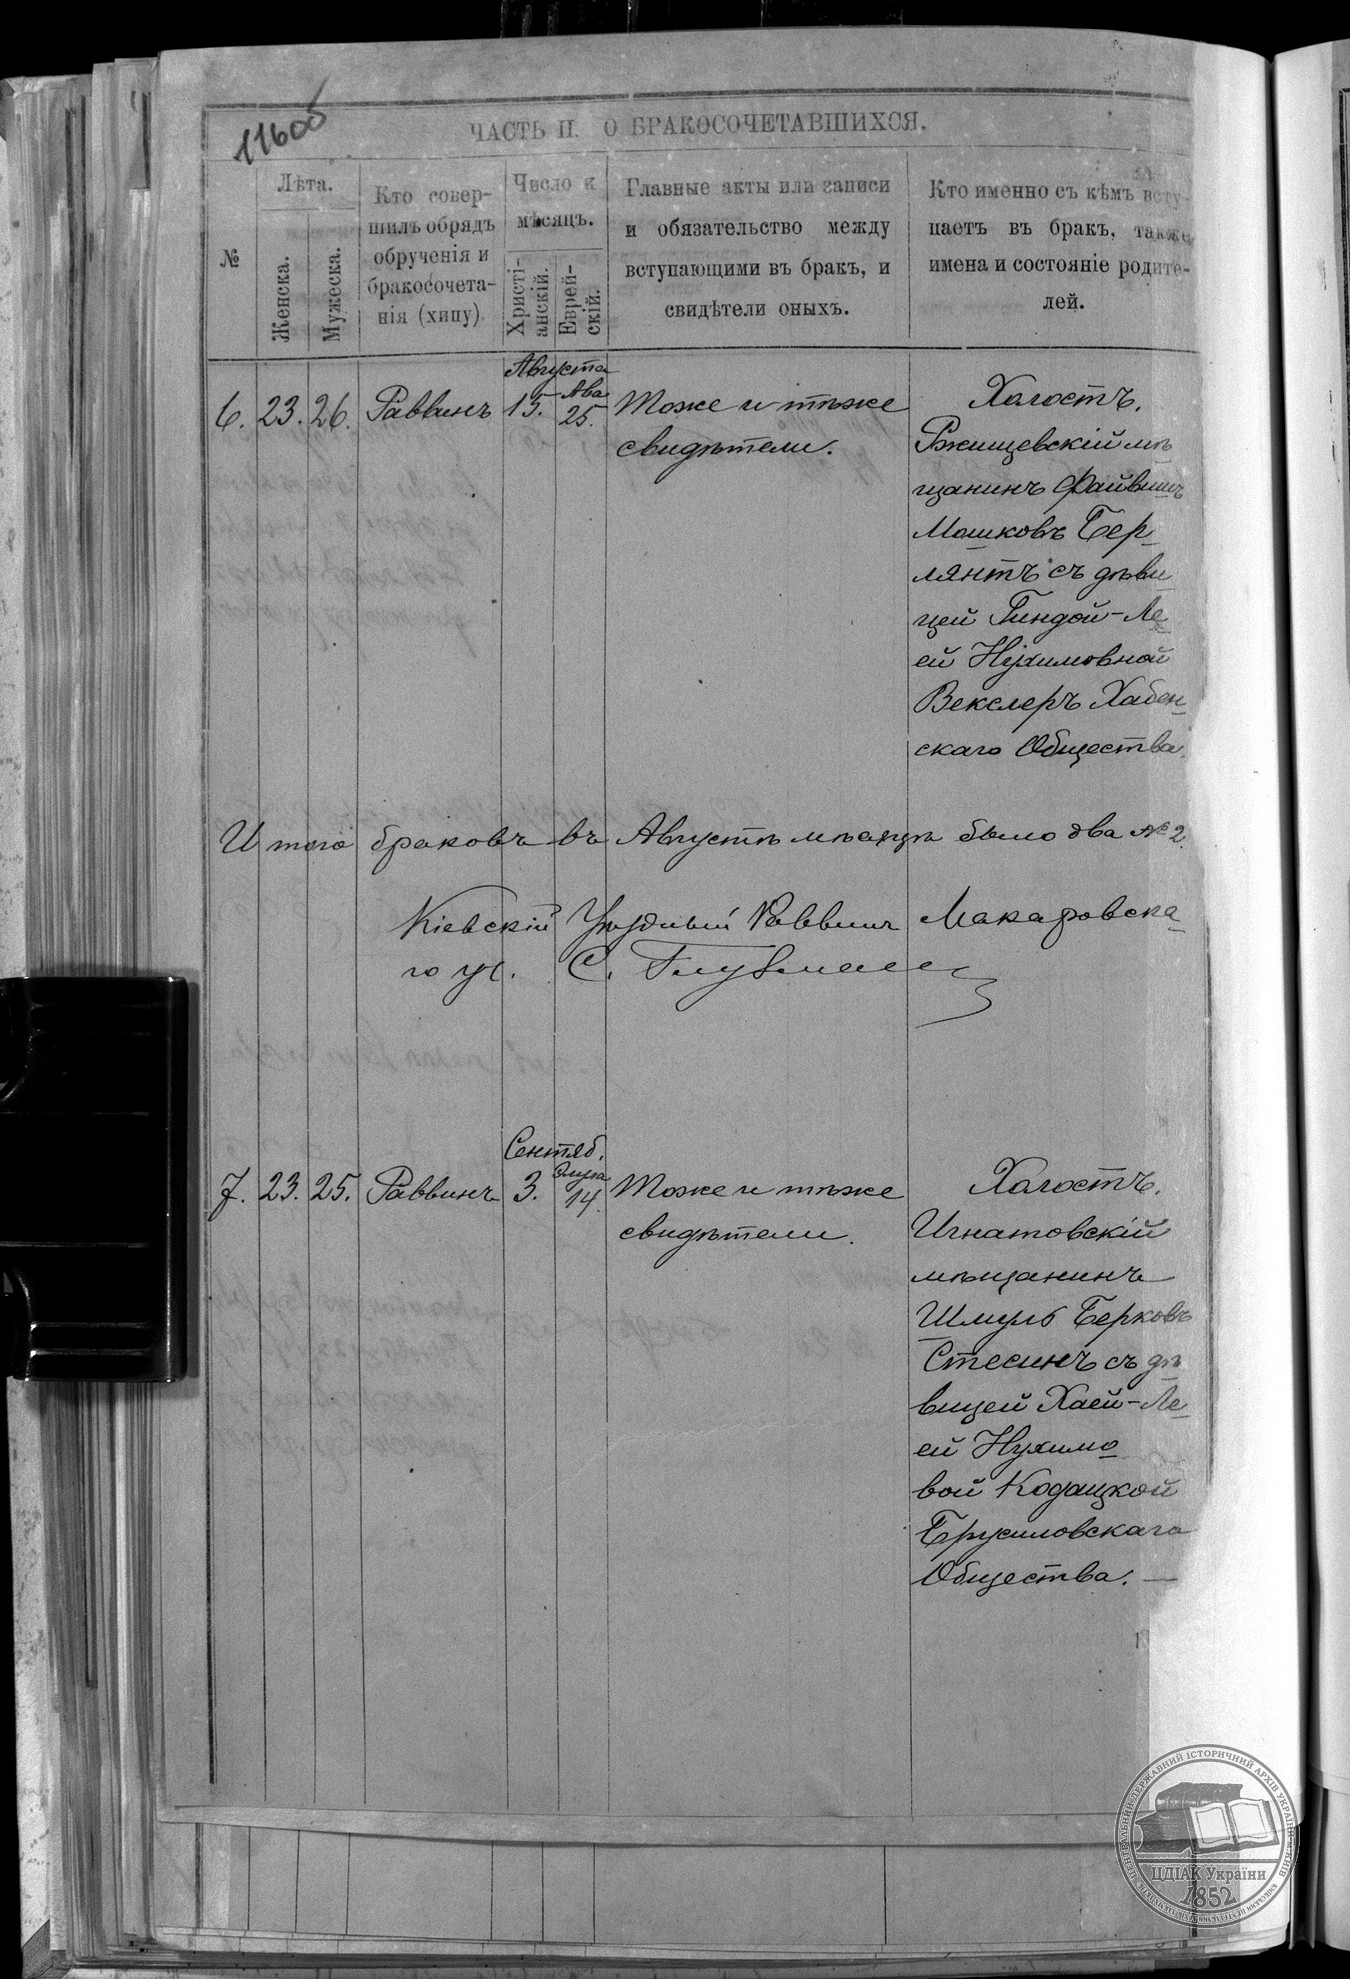 116об
ЧАСТЬ II. О БРАКОСОЧЕТАВШИХСЯ.
№
Лѣта.
Женска.
Мужеска.
Кто совер-
шилъ обрядъ
обрученія и
бракосочета-
нія (хипу)
Число и
мѣсяцъ.
Христі-
анскій.
Еврей-
скій.
Главные акты или записи
и обязательство между
вступающими въ бракъ, и
свидѣтели оныхъ.
Кто именно съ кѣмъ всту-
паетъ въ бракъ, также
имена и состояніе родите-
лей.
Августа
Ава
6. 23. 26. Раввинъ 15. 25. Тоже и тѣже
свидѣтели.
Холостъ.
Ржищевскій мѣ
щанинъ Файвишъ
Мошковъ Бер
лянтъ съ дѣви
цей Гиндой-Ле
ей Нухимовной
Векслеръ Хабен
скаго Общества
Итого браковъ въ Августѣ мѣсяцѣ было два № 2.
Кіевскій Уѣздный Раввинъ Макаровска
го уч. С. Глузман
Сентяб.
Элула
7. 23. 25. Раввинъ 3. 14. Тоже и тѣже
свидѣтели.
Холостъ.
Игнатовскій
мѣщанинъ
Шмуль Берковъ
Стесинъ съ дѣ
вицей Хаей-Ле
ей Нухимо
вой Кодацкой
Брусиловскаго
Общества.
ЦЕНТРАЛЬНИЙ ДЕРЖАВНИЙ ІСТОРИЧНИЙ АРХІВ УКРАЇНИ М. КИЇВ
ЦДІАК України
1852